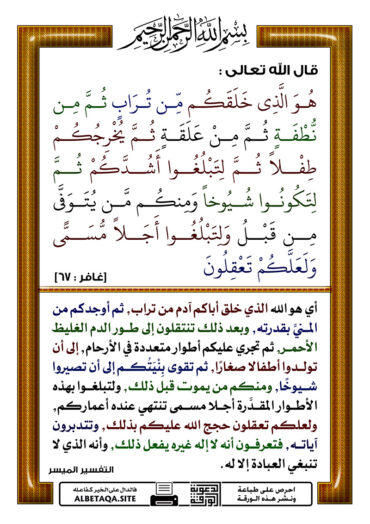 بِسْمِ اللَّهِ الرَّحْمَنِ الرَّحِيمِ
قال الله تعالى :
هُوَ الَّذِي خَلَقَكُم مِّن تُرَابٍ ثُمَّ مِن
نُّطْفَةٍ ثُمَّ مِنْ عَلَقَةٍ ثُمَّ يُخْرِجُكُمْ
طِفْلاً ثُمَّ لِتَبْلُغُوا أَشُدَّكُمْ ثُمَّ
لِتَكُونُوا شُيُوخاً وَمِنكُم مَّن يُتَوَفَّى
مِن قَبْلُ وَلِتَبْلُغُوا أَجَلاً مُّسَمًّى
وَلَعَلَّكُمْ تَعْقِلُونَ [غافر : ٦٧]
أي هو الله الذي خلق أباكم آدم من تراب, ثم أوجدكم من
المنيِّ بقدرته, وبعد ذلك تنتقلون إلى طور الدم الغليظ
الأحمر, ثم تجري عليكم أطوار متعددة في الأرحام, إلى أن
تولدوا أطفالا صغارًا, ثم تقوى بِنْيَتُكم إلى أن تصيروا
شيوخًا, ومنكم من يموت قبل ذلك, ولتبلغوا بهذه
الأطوار المقدَّرة أجلا مسمى تنتهي عنده أعماركم,
ولعلكم تعقلون حجج الله عليكم بذلك, وتتدبرون
آياته, فتعرفون أنه لا إله غيره يفعل ذلك, وأنه الذي لا
تنبغي العبادة إلا له. التفسير الميسر
احرص على طباعة ونشر هذه الورقة
الدعوية الورقة
فالدال على الخير كفاعله
ALBETAQA.SITE